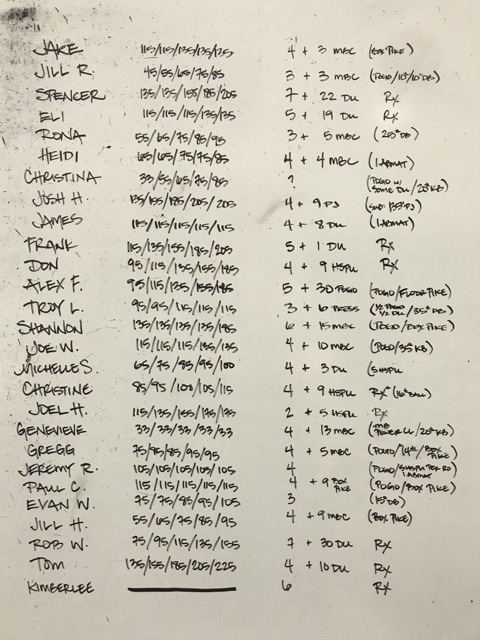 JAKE 115/115/135/135/125 4 + 3 MBC (BOX PIKE)
JILL R. 45/55/65/75/85 3 + 3 MBC (POGO/10#/10#DB)
SPENCER 135/135/155/185/205 7 + 22 DU Rx
ELI 115/115/115/135/135 5 + 19 DU Rx
RONA 55/65/75/85/95 3 + 5 MBC (20#DB)
HEIDI 65/65/75/75/85 4 + 4 MBC (1 ABMAT)
CHRISTINA 33/55/65/75/85 ? (POGO W/ SOME DU/26#KB)
JOSH H. 135/155/185/205/205 4 + 9 PJ (SUB: 135#PJ)
JAMES 115/115/115/115/115 4 + 8 DU (1 ABMAT)
FRANK 115/135/155/185/205 5 + 1 DU Rx
DON 95/115/135/155/185 4 + 9 HSPU Rx
ALEX F. 95/115/135/155/185 5 + 30 POGO (POGO/FLOOR PIKE)
TROY L. 95/95/115/115/115 3 + 6 PRESS (1/2 POGO 1/2 DU/35#DB)
SHANNON 135/135/135/135/185 6 + 15 MBC (POGO/BOX PIKE)
JOE W. 115/115/115/135/135 4 + 10 MBC (POGO/35#KB)
MICHELLE S. 65/75/85/95/100 4 + 3 DU (5 HSPU)
CHRISTINE 85/95/100/105/115 4 + 9 HSPU Rx+ (16# BALL)
JOEL H. 115/135/155/175/175 2 + 5 HSPU Rx
GENEVIEVE 33/33/33/33/33 4 + 13 MBC (MB POWER CL/20#KB)
GREGG 75/75/85/95/95 4 + 5 MBC (POGO/14#/BOX PIKE)
JEREMY R. 105/105/105/105/105 4 (POGO/5 HSPU PER RD 1 ABMAT)
PAUL C. 115/115/115/115/115 4 + 9 BOX PIKE (POGO/BOX PIKE)
EVAN W. 75/75/85/95/105 3 (15#DB)
JILL H. 55/65/75/85/95 4 + 9 MBC (BOX PIKE)
ROB W. 75/95/115/135/155 7 + 30 DU Rx
TOM 135/155/185/205/225 4 + 10 DU Rx
KIMBERLEE 6 Rx